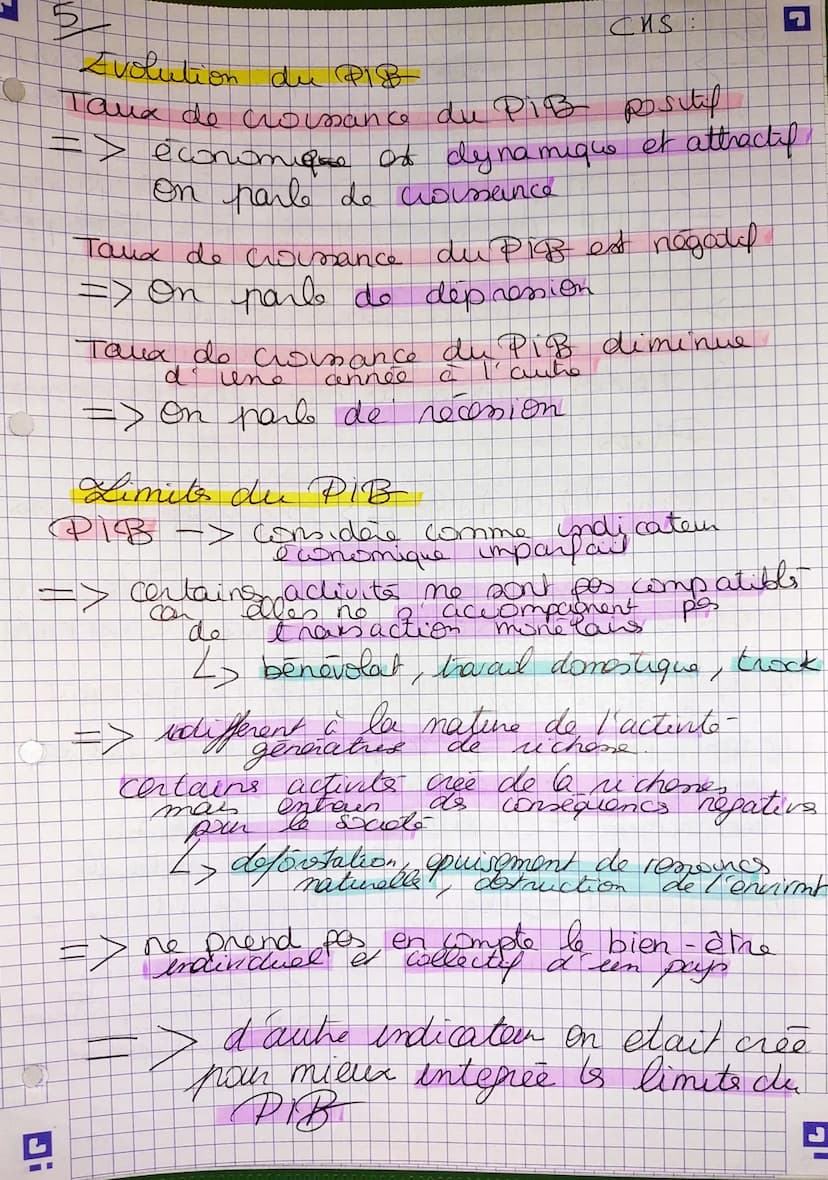 5/
CMS :
Evolution du PIB
Taux de croissance du PiB positif
=> économique et dynamique et attractif
On parle de croissance
Taux de croissance du PiB est négatif
=> On parle de dépression
Taux de croissance du PiB diminue
d'une année à l'autre
=> On parle de récession
Limits du PiB
PiB -> considéré comme indicateur
économique imparfait
=> certains activités ne sont pas compatibles
car elles ne s'accompagnent pas
de transaction monétais
↳ bénévolat, travail domestique, trock
=> indifférent à la nature de l'activité
génératrice de richesse.
certains activités créé de la richesses,
mais entrain des conséquences négatives
pour la société
↳ deforestation, épuisement de ressources
naturelles, destruction de l'envirmt
=> ne prend pas en compte le bien-être
individuel et collectif d'un pays
=> d'autre indicateur on etait créé
pour mieux integrée ls limits du
PIB